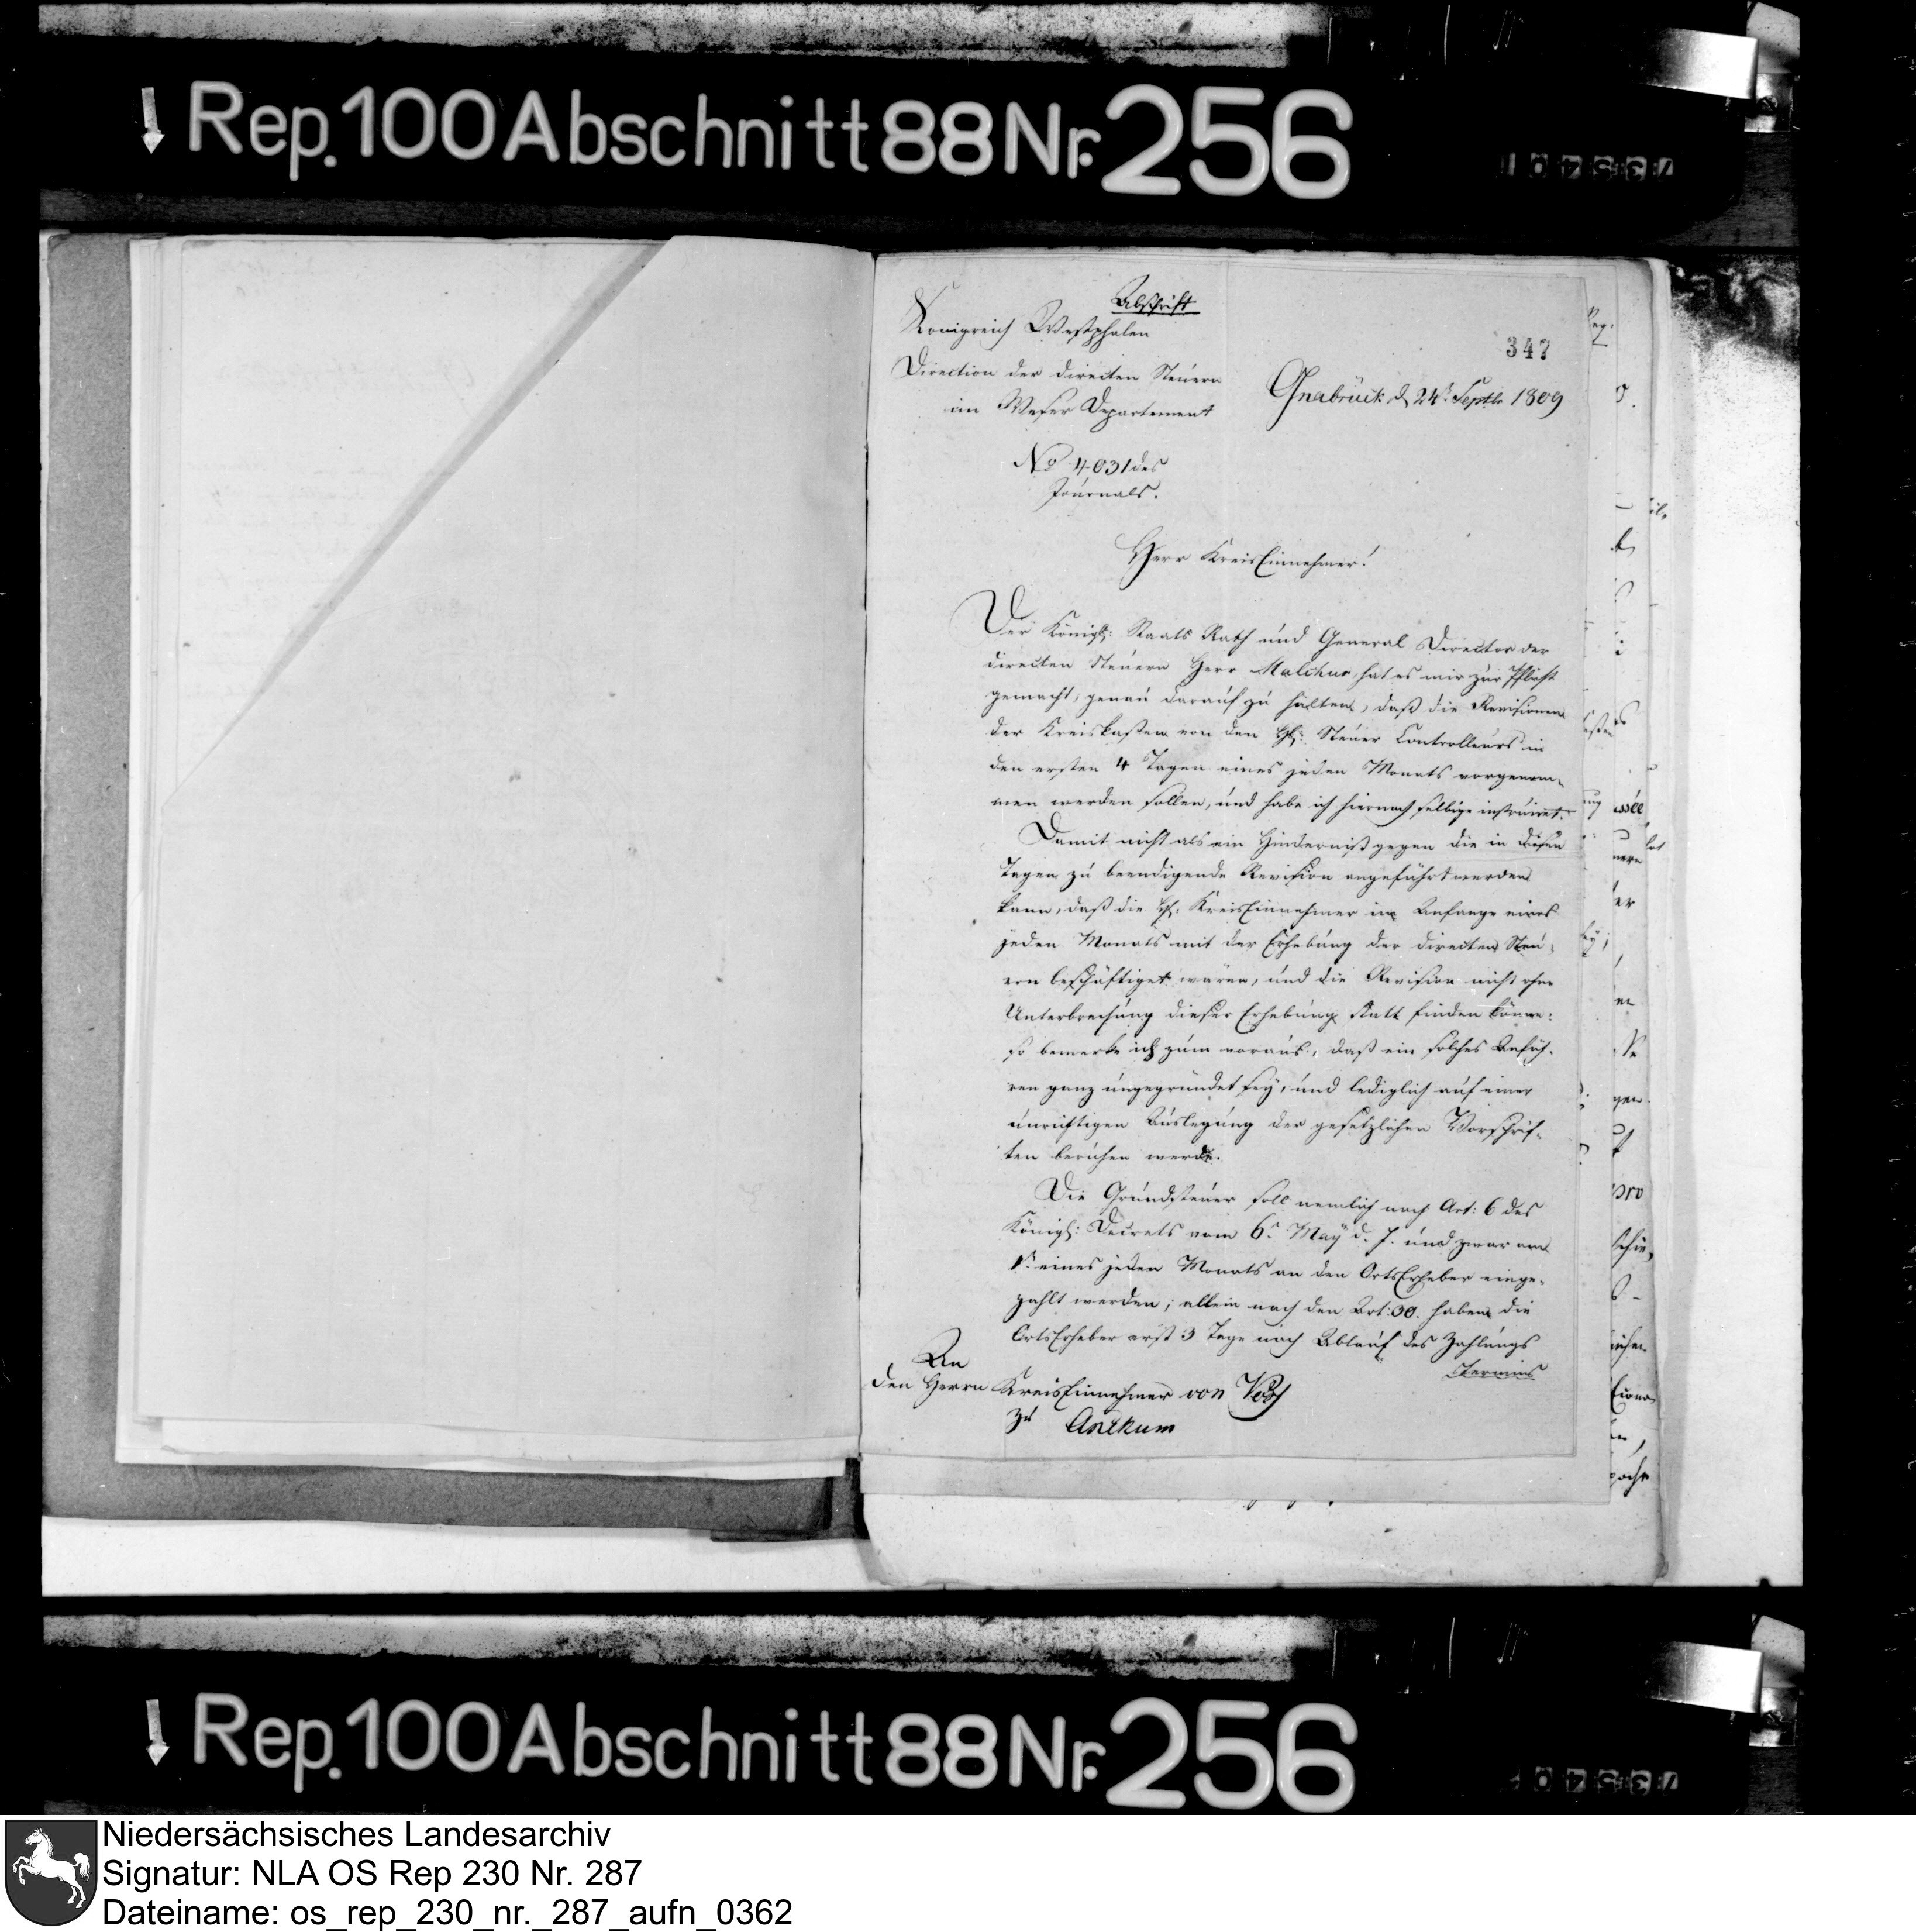 Rep. 100 Abschnitt 88 Nr. 256
Abschrift
Königreich Westphalen
347
Direction der directen Steuern
im Weser Departement
Osnabrück d 24t Septbr 1809
No 4031 des
Journals.
Herr KreisEinnehmer!
Der Königl: Staats Rath und General Director der
directen Steuern Herr Malchus hat es mir zur Pflicht
gemacht, genau darauf zu halten, daß die Revisionen
der Kreiskassen von den HH: Steuer Controlleurs in
den ersten 4 Tagen eines jeden Monats vorgenom-
men werden sollen, und habe ich hiernach selbige instruirt.
Damit nicht als ein Hinderniß gegen die in diesen
Tagen zu beendigende Revision angeführt werden
kann, daß die HH: KreisEinnehmer im Anfange eines
jeden Monats mit der Erhebung der directen Steu-
ern beschäftiget wären, und die Revision nicht ohne
Unterbrechung dieser Erhebung statt finden könne:
so bemerke ich zum voraus, daß ein solches Anfüh-
ren ganz ungegründet sey, und lediglich auf einer
unrichtigen Auslegung der gesetzlichen Vorschrif-
ten beruhen werde.
Die Grundsteuer soll nemlich nach Art: 6 des
Königl: Decrets vom 6n May d. J. und zwar am
1t eines jeden Monats an den OrtsErheber einge-
zahlt werden; allein nach den Art: 30. haben die
OrtsErheber erst 3 Tage nach Ablauf des Zahlungs
Termins
An
den Herrn KreisEinnehmer von Voß
zu Anckum
Rep. 100 Abschnitt 88 Nr. 256
Niedersächsisches Landesarchiv
Signatur: NLA OS Rep 230 Nr. 287
Dateiname: os_rep_230_nr._287_aufn_0362